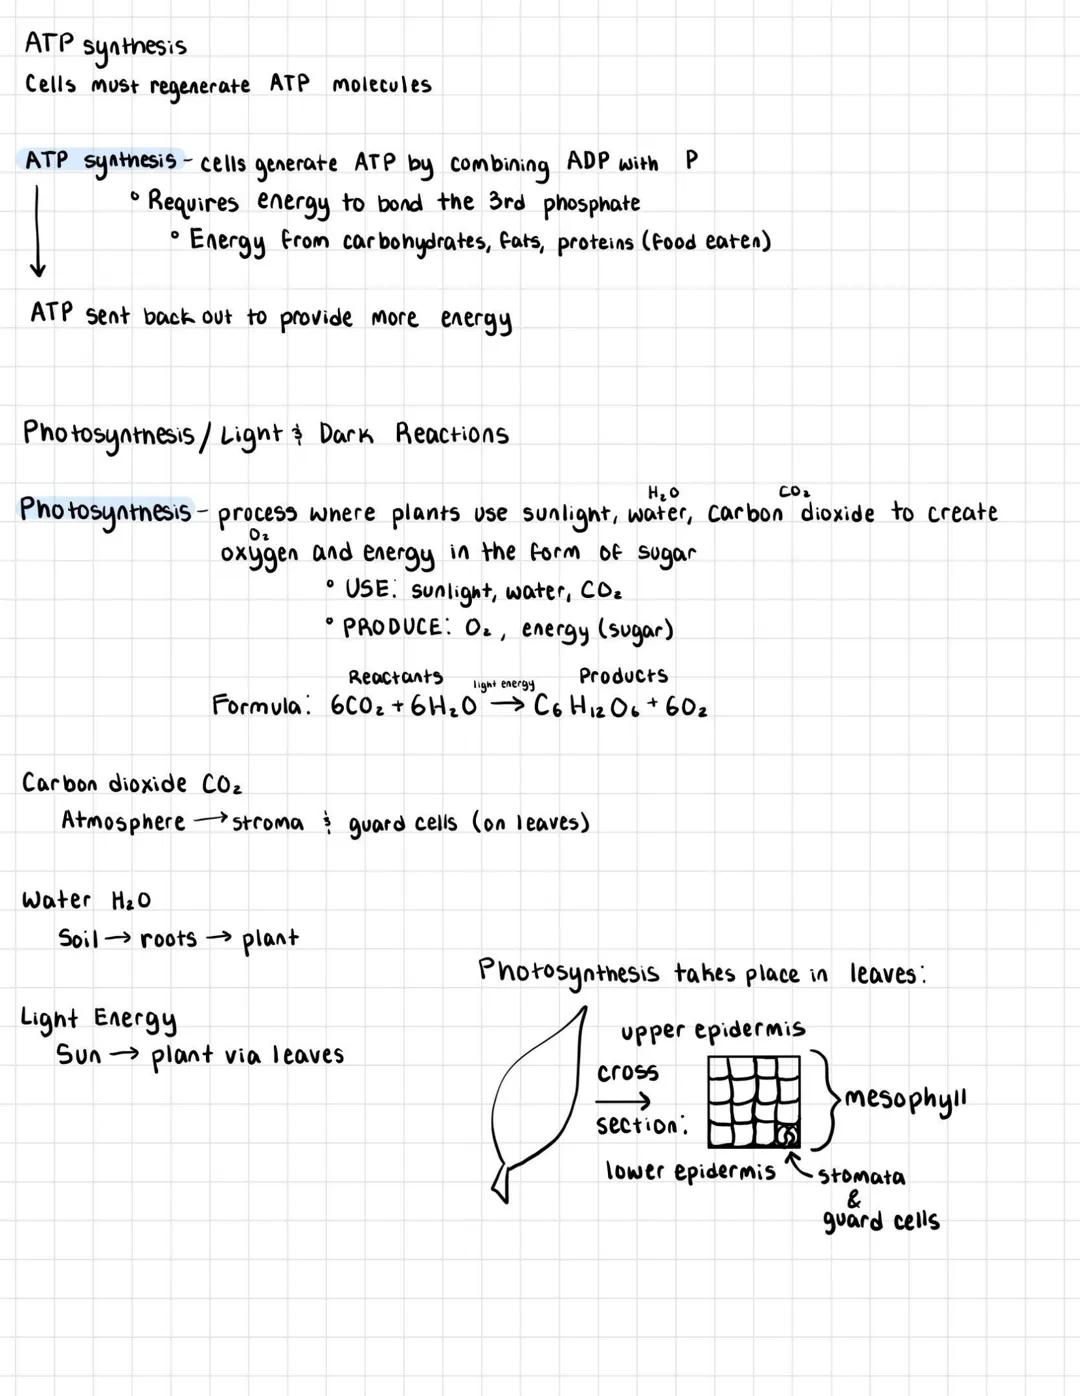 ATP synthesis
Cells must regenerate ATP molecules
ATP synthesis - cells generate ATP by combining ADP with P
° Requires energy to bond the 3rd phosphate
° Energy from carbohydrates, fats, proteins (food eaten)
ATP sent back out to provide more energy
Photosynthesis / Light & Dark Reactions
H₂O CO₂
Photosynthesis - process where plants use sunlight, water, carbon dioxide to create
O₂
oxygen and energy in the form of sugar
° USE: sunlight, water, CO₂
° PRODUCE: O₂, energy (sugar)
Reactants light energy Products
Formula: 6CO₂ + 6H₂O → C₆H₁₂O₆ + 6O₂
Carbon dioxide CO₂
Atmosphere → stroma & guard cells (on leaves)
Water H₂O
Soil → roots → plant
Light Energy
Sun → plant via leaves
Photosynthesis takes place in leaves:
upper epidermis
cross
section:
mesophyll
lower epidermis
stomata
&
guard cells